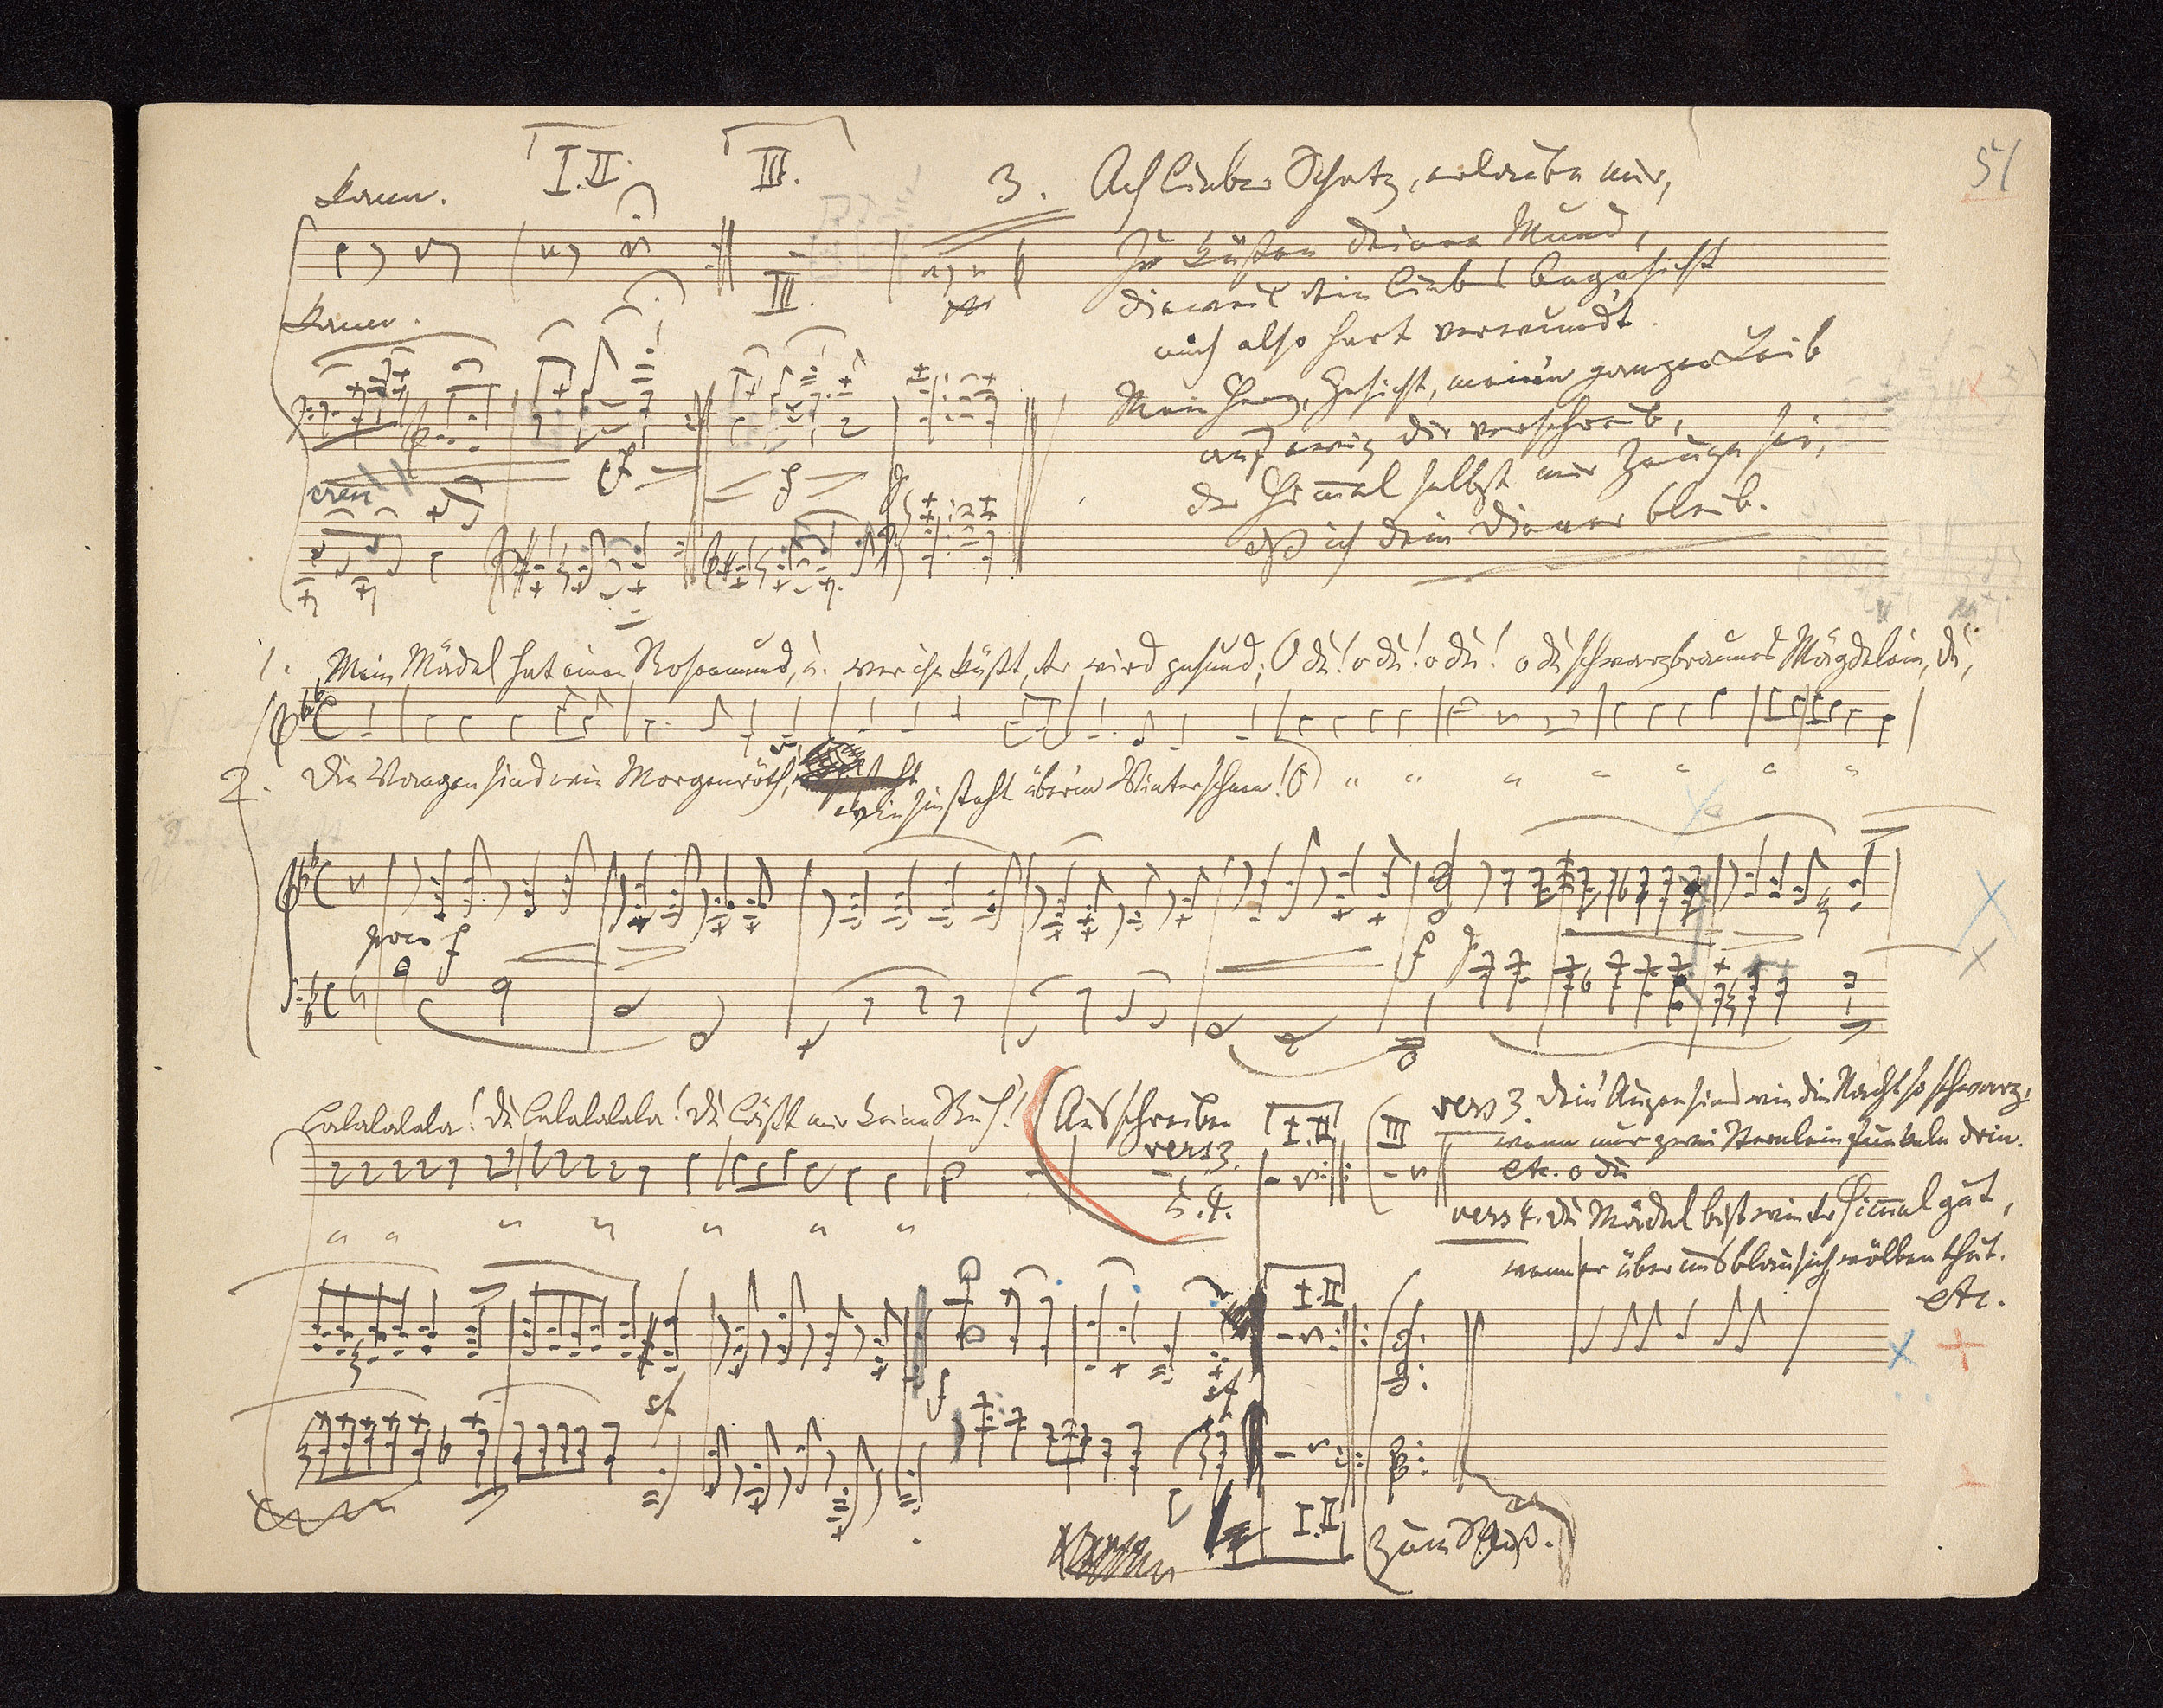 51
I. II.
III.
kann.
3. Ach lieber Schatz, erlaube mir,
Zu küßen deinen Mund,
III.
kann.
dieweil dein liebes Angesicht
mich also hart verwundt.
Mein Herz, Gesicht, meinen ganzen Leib
auf ewig dir verschreib,
der Himmel selbst mir Zeuge sei,
dß ich dein Diener bleib.
cresc
sf
f
p
1. Mein Mädel hat einen Rosenmund, u. wer ihn küßt, der wird gesund; O du! o du! o du! o du schwarzbraunes Mägdelein, du,
2. Die Wangen sind wie Morgenröth,
wie sie steht über'm Winterschnee! O " " " " " " "
poco f
f
p
lalalalala! du lalalalala! du läßt mir keine Ruh!
(Ausschreiben
vers 3.
u. 4.
I. II
III
vers 3. Dein' Augen sind wie die Nacht so schwarz,
wenn nur zwei Sternlein funkeln drin.
etc. o du
vers 4. Du Mädel bist wie der Himmel gut,
wenn er über uns blau sich wölben thut.
etc.
" " " " " " "
I. II
sf
f
sf
I. II
Zum Schluß.